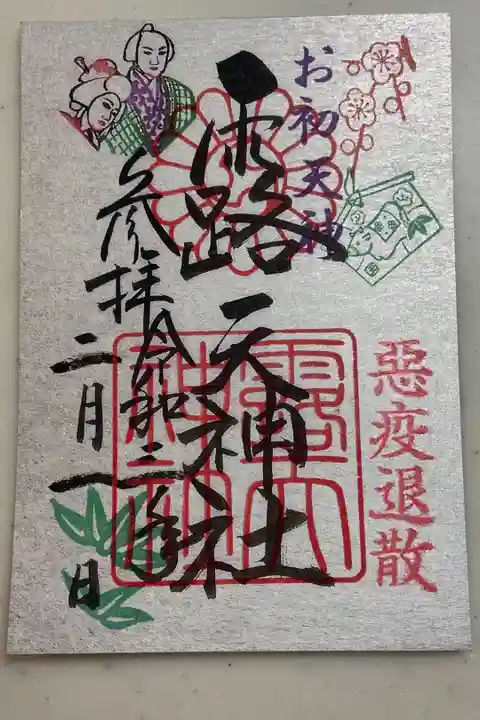 惡疫退散
お初天神
露天神社
露天
神社
参拝令和三年
二月一日